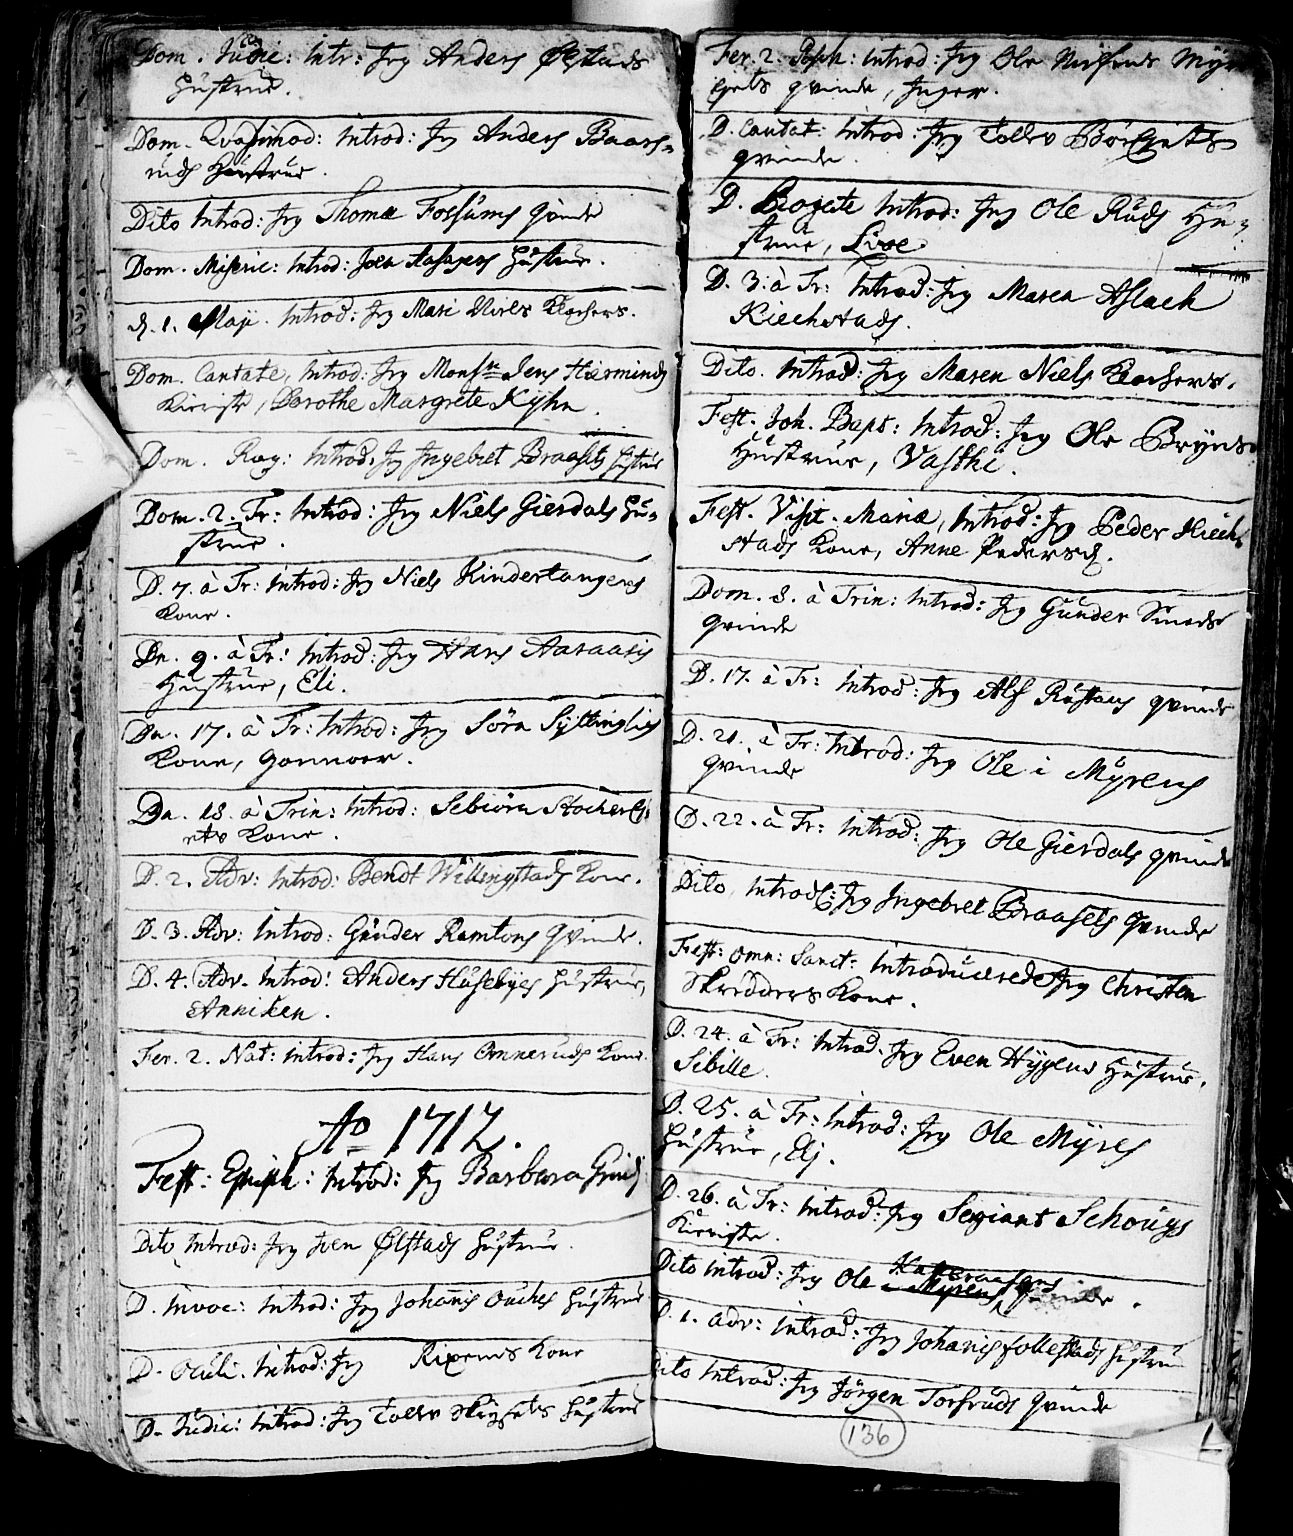 Dom. Judic: Intr: Jeg Anders Ølstads
Hustrue.
Dom. Qvasimod: Introd: Jeg Anders Baars-
ruds Hustrue.
Dito Introd: Jeg Thomæ Fossums Qvinde
Dom. Miseric: Introd: Hustrue.
d. 1. Maji. Introd: Jeg Mari Niels Klochers.
Dom. Cantate, Introd: Jeg Monsr Jens
Kieriste, Dorothe Margrete Kyhn.
Dom. Rog: Introd: Jeg Ingebret Braasets Hustrue
Dom. 2. Tr: Introd: Jeg Niels Gierdals Hu-
strue.
D. 7. à Tr: Introd: Jeg Niels Kindertangens
Kone.
Dn. 9. à Tr: Introd: Jeg Hans Aaraasis
Hustrue, Eli.
Dn. 17. à Tr: Introd: Jeg Sørn Syltinglis
Kone, Gonnoer.
Dn. 18. à Trin: Introd: Sebiørn
Kone.
D. 2. Adv: Introd: Bendt Willingstads Kone.
D. 3. Adv: Introd: Gunder Ramtons Qvinde.
D. 4. Adv. Introd: Anders Husebyes Hustrue,
Anniken.
Fer. 2. Nat: introd: Jeg Hans Omneruds Kone.
Ao 1712.
Fest: Epiph: Introd: Jeg Barbara Griis
Dito Introd: Jeg Iven Ølstads Hustrue.
D. Invoc: Introd: Jeg Johannis Ouches Hustrue
D. Oculi. Introd: Jeg Rixens Kone
D. Judic: Introd: Jeg Tollv Hustrue
Fer. 2. Pasch: Introd: Jeg Ole
qvinde, Inger.
D. Cantat: Introd: Jeg Tollv
qvinde.
D. Rogate Introd: Jeg Ole Ruds Hu-
strue, Live
D. 3. à Tr: Introd: Jeg Maren Aslach
Kiechstads.
Dito. Introd: Jeg Maren Niels Klochers.
Fest. Joh. Bapt: Introd: Jeg Ole Bryns
Hustrue, Vasthi.
Fest. Visit. Mariæ, Introd: Jeg Peder Kiech-
stads Kone, Anne Pedersd.
Dom. 8. à Trin: Introd: Jeg Gunder Smeds
qvinde
D. 17. à Tr: Introd: Jeg Alf Røstans qvinde
D. 21. à Tr: Introd: Jeg Ole i Myrens
qvinde
D. 22. à Tr: Introd: Jeg Ole Gierdals qvinde
Dito, Introd: Jeg Ingebret Braasets Qvinde
Fest: Omn: Sanct: Introducerede Jeg Christen
Skredders Kone.
D. 24. à Tr: Introd: Jeg Even Hygens Hustrue,
Sibille.
D. 25. à Tr: Introd: Jeg Ole Myres
Hustrue, Elj.
D. 26. à Tr: Introd: Jeg Sergiant Schougs
Kieriste.
Dito introd: Jeg Ole i Myrens qvinde.
D. 1. Adv: Introd: Jeg Johanis Follestads Hustrue
Dito Introd: Jeg Jørgen Torsruds Qvinde
136